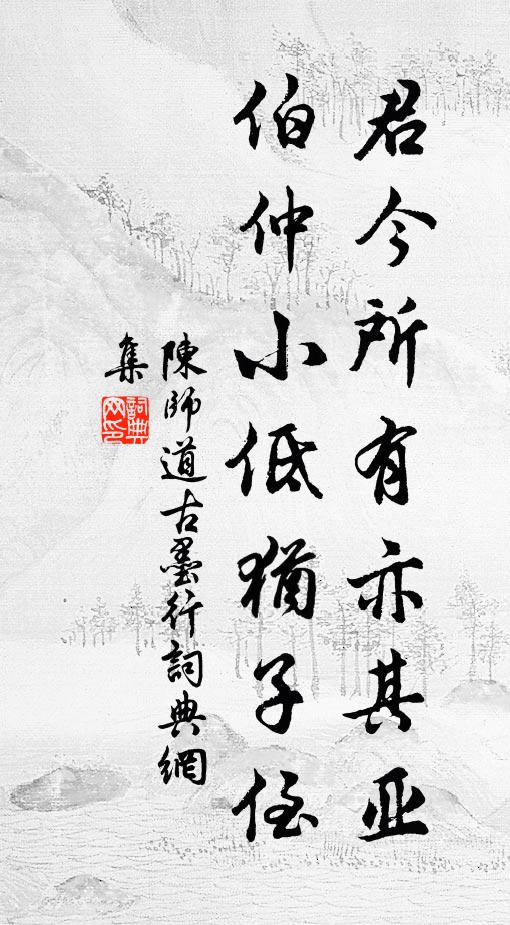 君今所有亦其亚
伯仲小低猶子侄
陳師道古墨行詞典網
集
詞典
网印